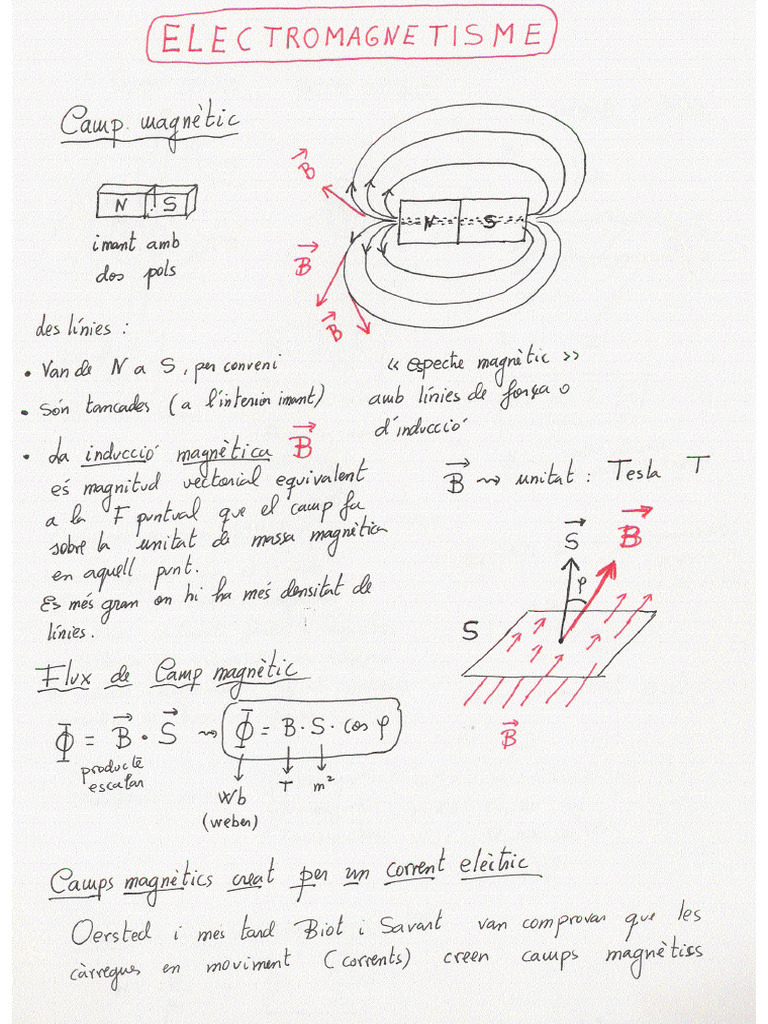 ELECTROMAGNETISME
Camp magnètic
N S
imant amb
dos pols
B
B
B
N S
des línies :
• Van de N a S, per conveni
• Són tancades (a l'interior imant)
« espectre magnètic »
amb línies de força o
d'inducció
• La inducció magnètica B
és magnitud vectorial equivalent
a la F puntual que el camp fa
sobre la unitat de massa magnètica
en aquell punt.
Es més gran on hi ha més densitat de
línies.
B ⇝ unitat : Tesla T
S B
φ
S
B
Flux de Camp magnètic
Φ = B · S ⇝ Φ = B · S · cos φ
producte
escalar
Wb T m²
(weber)
Camps magnètics creat per un corrent elèctric
Oersted i mes tard Biot i Savart van comprovar que les
càrregues en moviment (corrents) creen camps magnètics